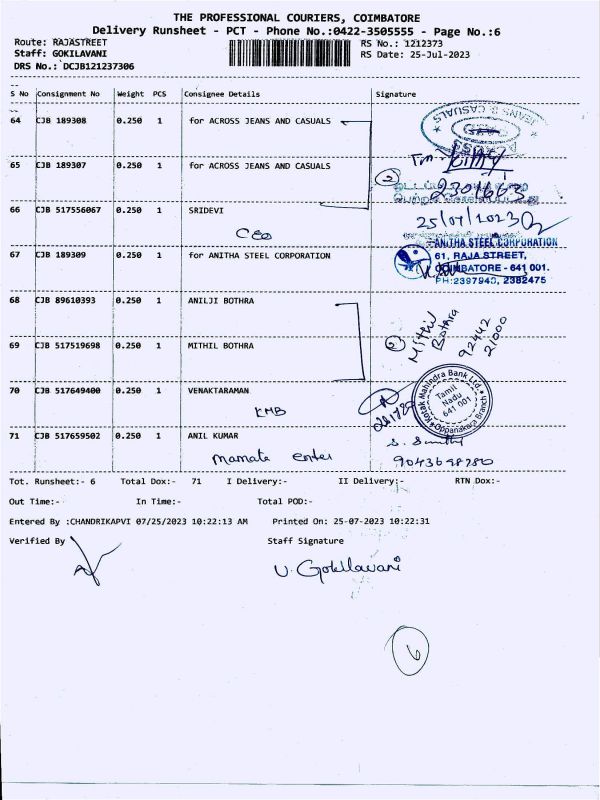 THE PROFESSIONAL COURIERS, COIMBATORE
Delivery Runsheet - PCT - Phone No.:0422-3505555 - Page No.:6
Route: RAJASTREET RS No.: 1212373
Staff: GOKILAVANI RS Date: 25-Jul-2023
DRS No.: DCJB121237306
S No Consignment No Weight PCS Consignee Details Signature
64 CJB 189308 0.250 1 for ACROSS JEANS AND CASUALS
JEANS & CASUALS
ACROSS
65 CJB 189307 0.250 1 for ACROSS JEANS AND CASUALS
2
2301663
66 CJB 517556067 0.250 1 SRIDEVI
25/07/2023
CEO
67 CJB 189309 0.250 1 for ANITHA STEEL CORPORATION
ANITHA STEEL CORPORATION
61, RAJA STREET,
COIMBATORE - 641 001.
PH:2397940, 2382475
68 CJB 89610393 0.250 1 ANILJI BOTHRA
69 CJB 517519698 0.250 1 MITHIL BOTHRA
2
Mithil
Bothra
92442
21000
70 CJB 517649400 0.250 1 VENAKTARAMAN
KMB
Kotak Mahindra Bank Ltd.
Tamil
Nadu
641 001
Oppanakara Branch
71 CJB 517659502 0.250 1 ANIL KUMAR
mamata enter
9043698980
Tot. Runsheet:- 6 Total Dox:- 71 I Delivery:- II Delivery:- RTN Dox:-
Out Time:- In Time:- Total POD:-
Entered By :CHANDRIKAPVI 07/25/2023 10:22:13 AM Printed On: 25-07-2023 10:22:31
Verified By Staff Signature
U. Gokilavani
6